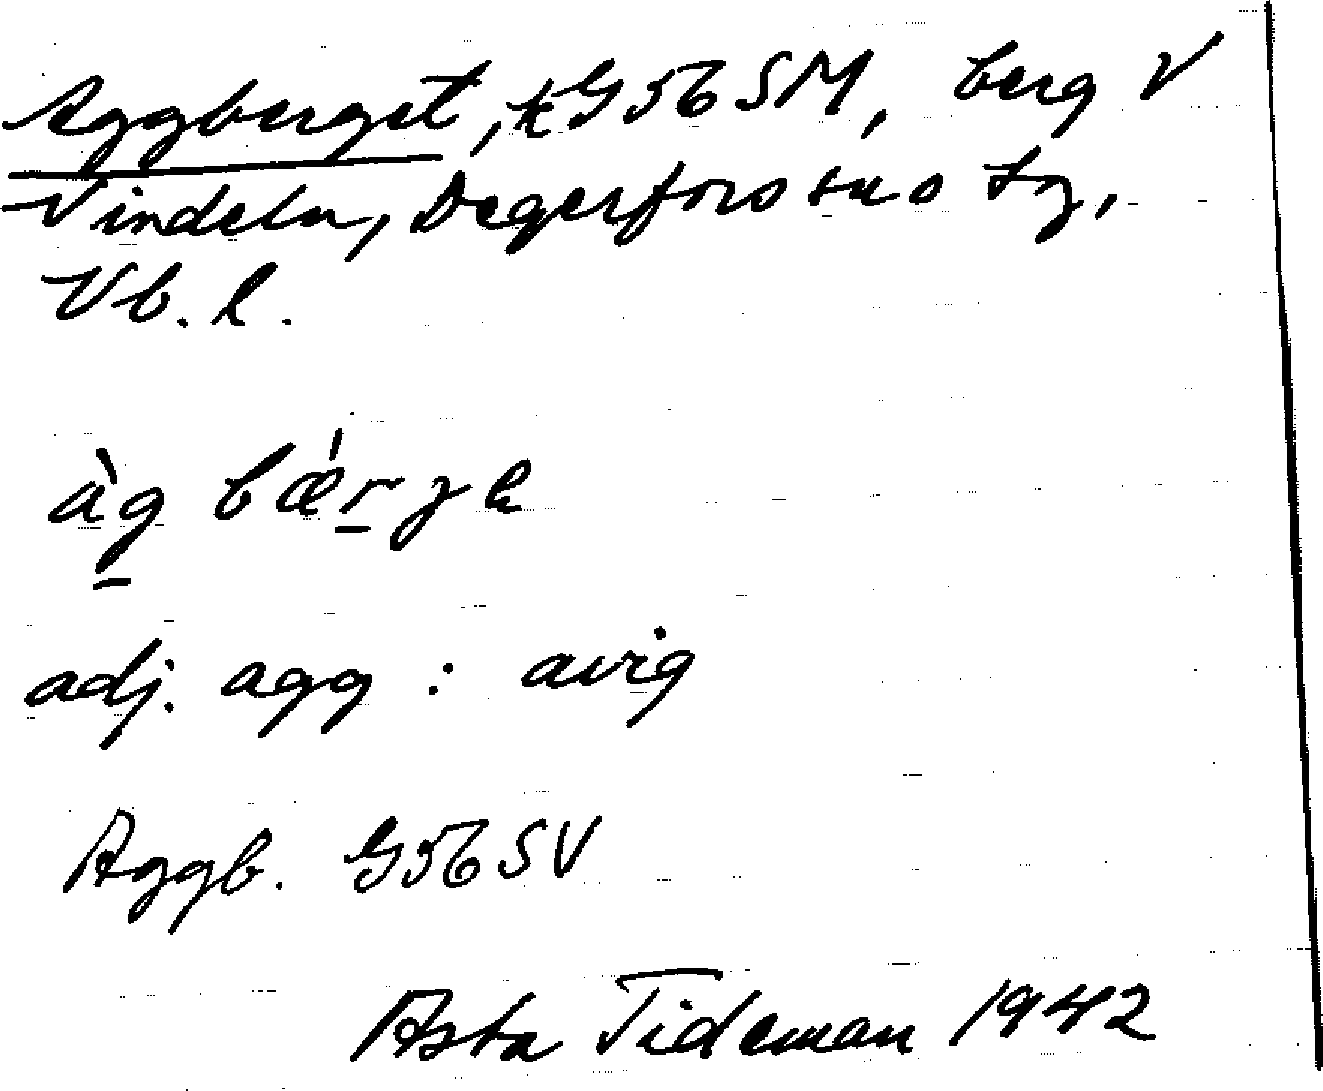 Aggberget, tG56SM, berg V
Vindeln, Degerfors sns tg,
Vb. l.
àg bǽrge
adj. agg : avig
Aggb. G56SV
Asta Tideman 1942